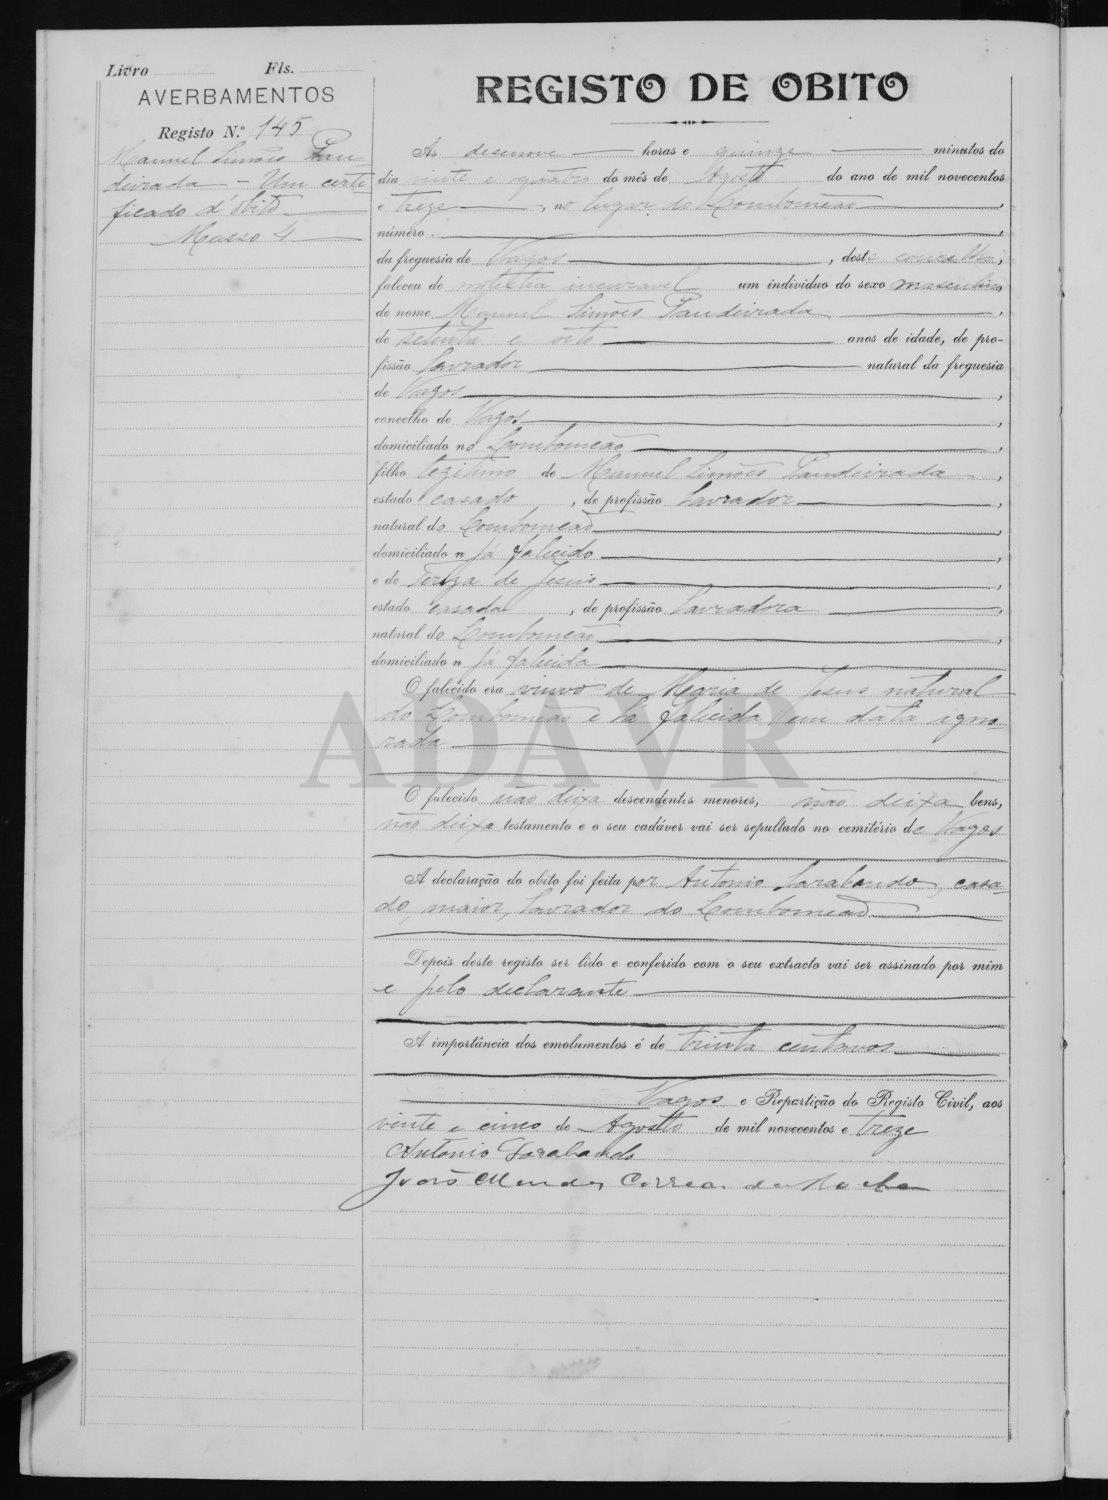 Livro Fls.
AVERBAMENTOS
Registo N.º 145
Manuel Simões Pan
deirada - Um certi
ficado d'obito
Masso 4
REGISTO DE OBITO
Ás desenove horas e quinze minutos do
dia vinte e quatro do mês de Agosto do ano de mil novecentos
e treze, no lugar de Lombomeão,
número
da freguesia de Vagos, deste concelho,
faleceu de molestia incuravel um individuo do sexo masculino
de nome Manuel Simões Pandeirada,
de setenta e oito anos de idade, de pro-
fissão lavrador natural da freguesia
de Vagos,
concelho de Vagos,
domiciliado no Lombomeão,
filho legitimo de Manuel Simões Pandeirada,
estado casado, de profissão lavrador,
natural do Lombomeão,
domiciliado n já falecido,
e de Tereza de Jesus,
estado casada, de profissão lavradora,
natural do Lombomeão,
domiciliado n já falecida
O falecido era viuvo de Maria de Jesus natural
do Lombomeão e la falecida em data igno-
rada
ADAVR
O falecido não deixa descendentes menores, não deixa bens,
não deixa testamento e o seu cadáver vai ser sepultado no cemitério de Vagos
A declaração do obito foi feita por Antonio Sarabando, casa-
do, maior, lavrador do Lombomeão
Depois deste registo ser lido e conferido com o seu extracto vai ser assinado por mim
e pelo declarante
A importância dos emolumentos é de trinta centavos
Vagos e Repartição do Registo Civil, aos
vinte e cinco de Agosto de mil novecentos e treze
Antonio Sarabando
João Mendes Correa da Rocha